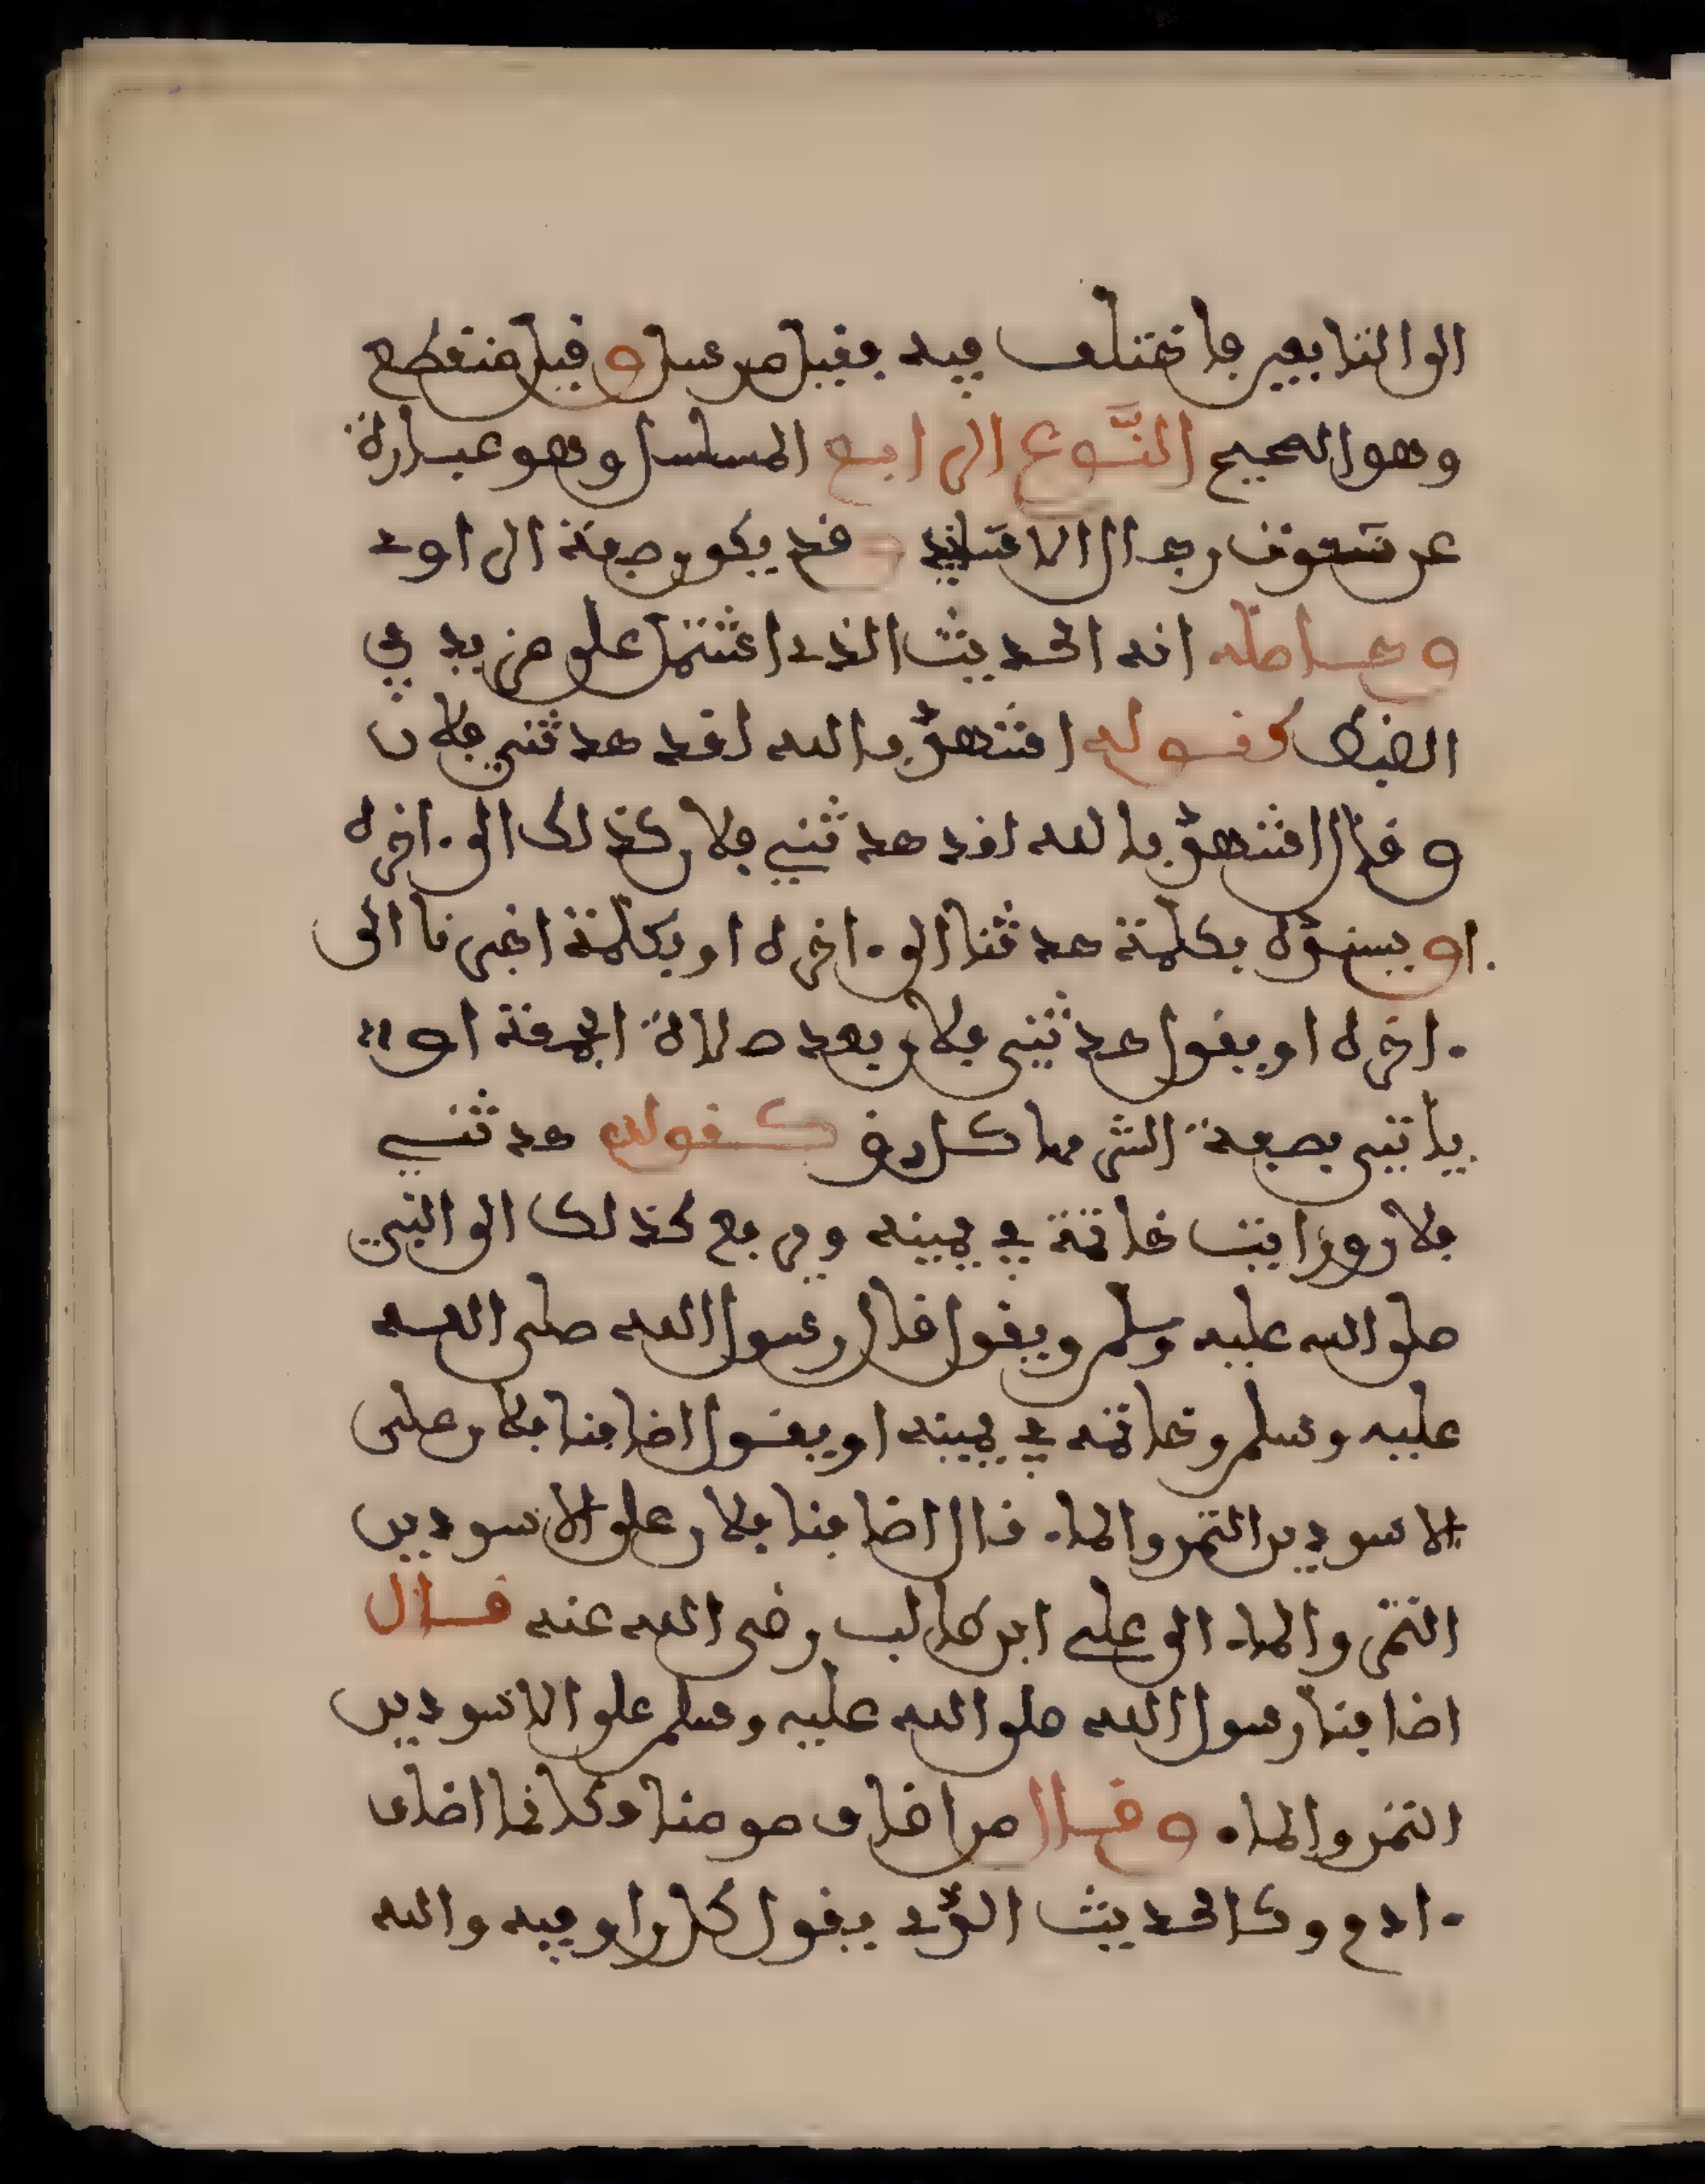 الى التابعين فاختلف فيه فقيل مرسل وقيل منقطع
وهو الصحيح النَّوع الرابع المسلسل وهو عبارة
عن نعوت رجال الاسانيد وقد يكون صفة الراوي
وحاصله انه الحديث الذي اشتمل على مزيد في
الضبط كقوله اشهدُ بالله لقد حدثني فلان
وقال اشهدُ بالله لقد حدثني فلان كذلك الى اخره
او يسنده بكلمة حدثنا الى اخره او بكلمة اخبرنا الى
اخره او يقول حدثني فلان بعد صلاة الجمعة او
ياتي بصفة الشي
كقوله حدثني
فلان ورايت خاتمة في يمينه ويرفع كذلك الى النبي
صلى الله عليه وسلم ويقول قال رسول الله صلى الله
عليه وسلم وخاتمه في يمينه او يقول اضافنا فلان على
الاسودين التمر والماء قال اضافنا فلان على الاسودين
التمر والماء الى علي ابن طالب رضى الله عنه قال
اضافنا رسول الله صلى الله عليه وسلم على الاسودين
التمر والماء وقال من اضاف مومنا وكانما اضاف
ادم وكالحديث الذي يقول كل راو فيه والله